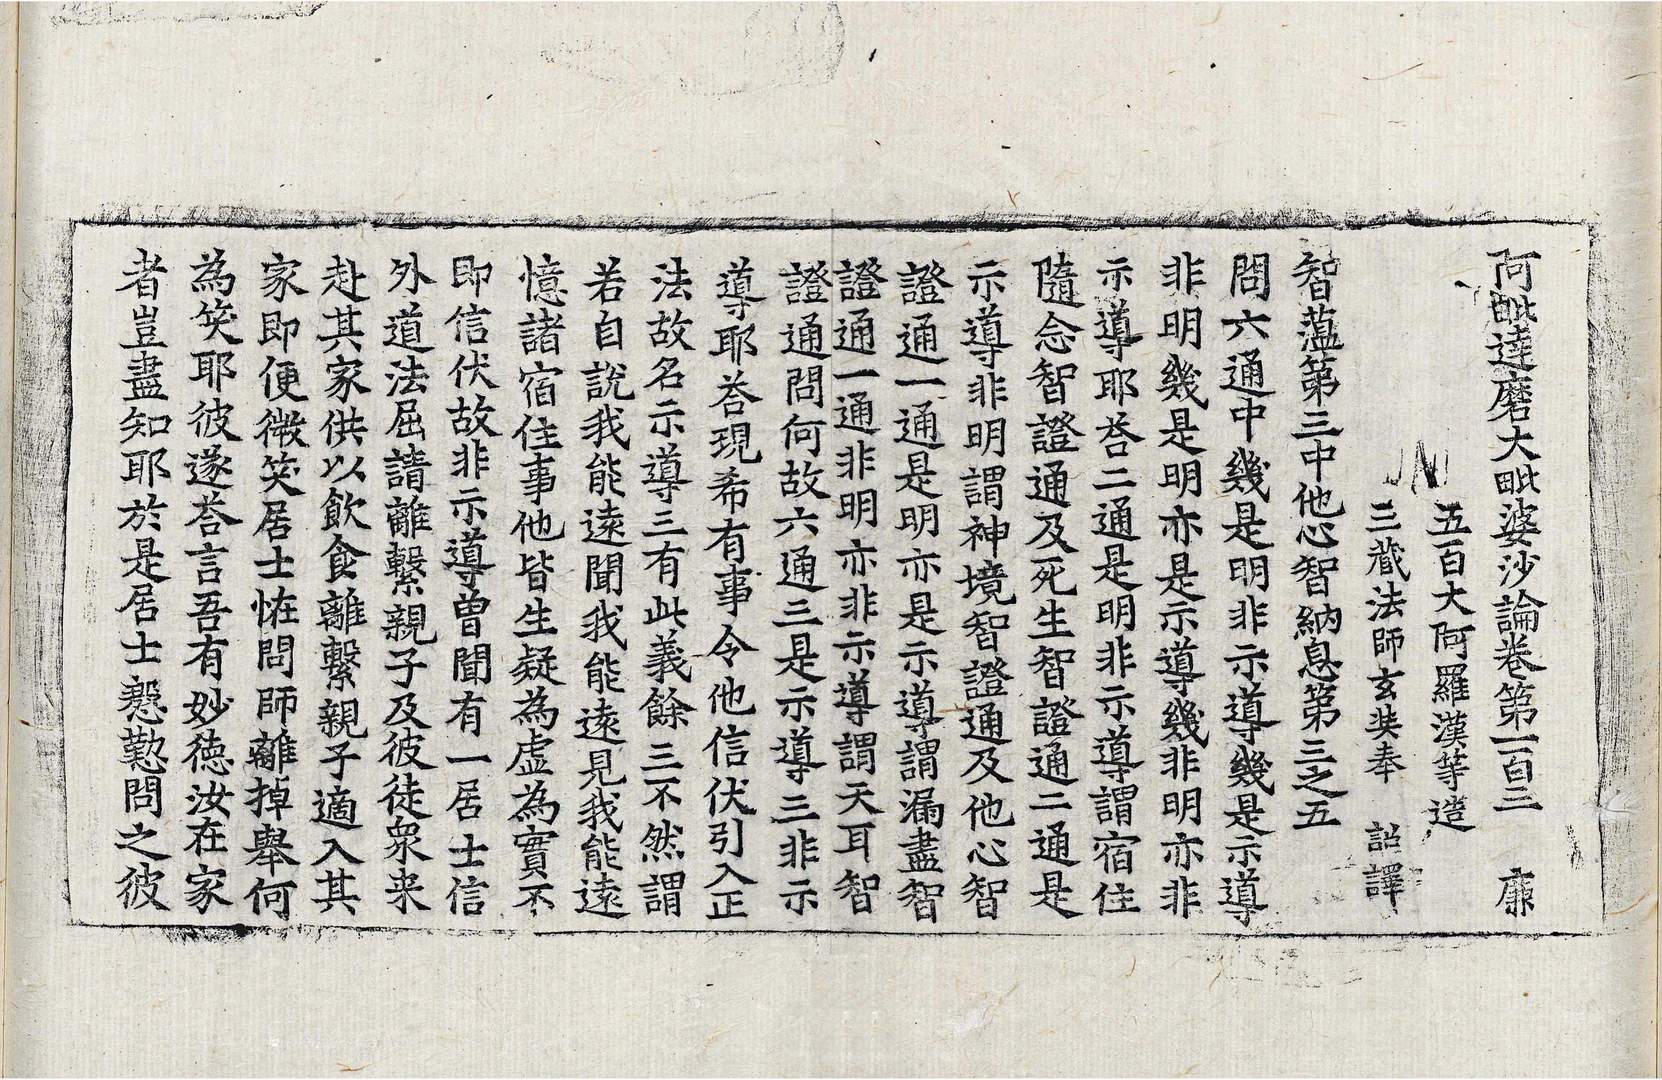 阿毗達磨大毗婆沙論卷第一百三 廉
五百大阿羅漢等造
三藏法師玄奘奉 詔譯
智蘊第三中他心智納息第三之五
問六通中幾是明非示導幾是示導
非明幾是明亦是示導幾非明亦非
示導耶荅二通是明非示導謂宿住
隨念智證通及死生智證通二通是
示導非明謂神境智證通及他心智
證通一通是明亦是示導謂漏盡智
證通一通非明亦非示導謂天耳智
證通問何故六通三是示導三非示
導耶荅現希有事令他信伏引入正
法故名示導三有此義餘三不然謂
若自說我能遠聞我能遠見我能遠
憶諸宿住事他皆生疑為虛為實不
即信伏故非示導曾聞有一居士信
外道法屈請離繫親子及彼徒衆来
赴其家供以飲食離繫親子適入其
家即便微笑居士恠問師離掉舉何
為笑耶彼遂荅言吾有妙徳汝在家
者豈盡知耶於是居士慇懃問之彼